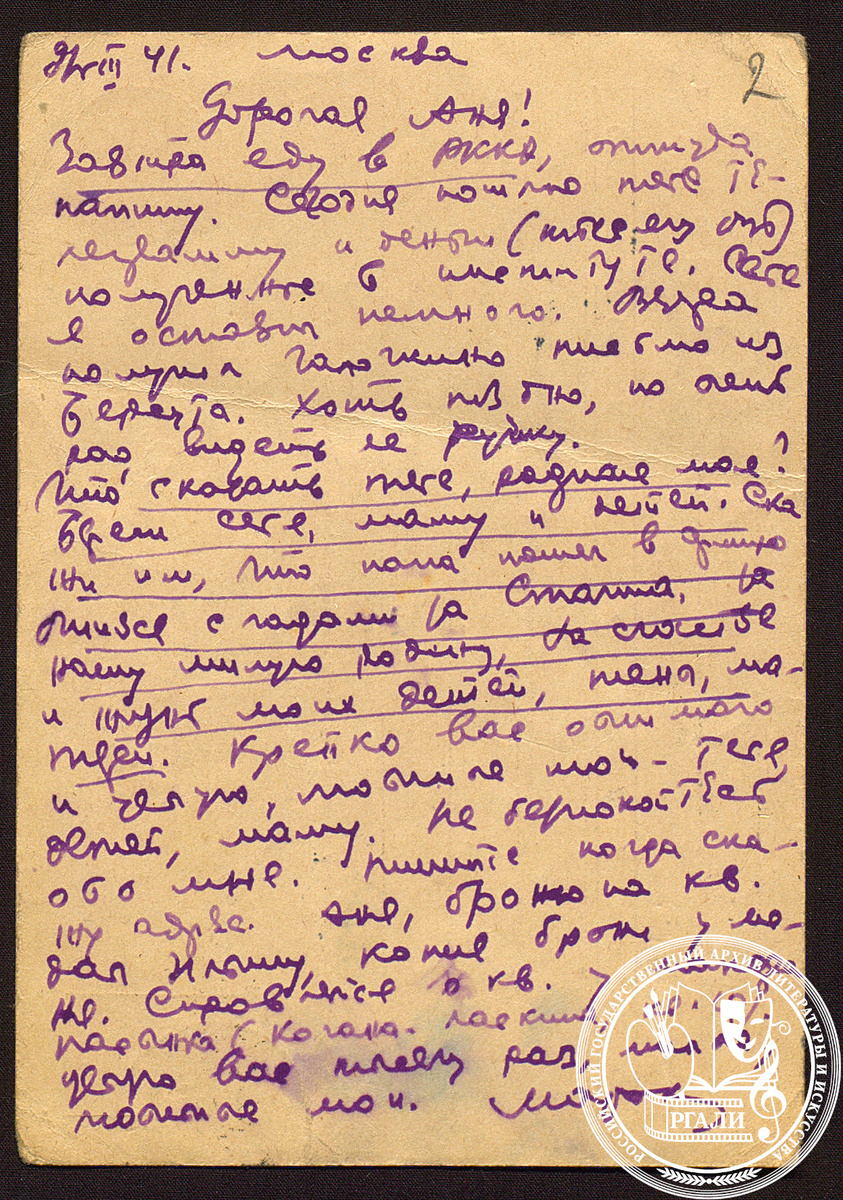 III 41. Москва
2
Дорогая Аня!
Завтра еду в РККА, откуда
напишу. Сегодня пошлю тебе те-
леграмму и деньги (
полученные в институте. Себе
я оставил немного. Вчера
получил письмо из
Хоть но очень
рад видеть ее ручку.
Что сказать тебе, родная моя?
Береги себя, маму и детей. Ска
жи им, что папа пошел в армию
биться с гадами за Сталина, за
нашу милую Родину, за счастье
и жизнь моих детей, жены, ма-
Крепко вас обнимаю
и целую, любимые мои - тебя,
детей, маму. Не беспокойтесь
обо мне. Пишите когда ска-
жу адрес. Аня, броню на кв.
дал Ильину, копия брони у ме-
ня. о кв. у
Когана.
целую вас тысячу раз,
любимые мои.
РОССИЙСКИЙ ГОСУДАРСТВЕННЫЙ АРХИВ ЛИТЕРАТУРЫ И ИСКУССТВА
РГАЛИ